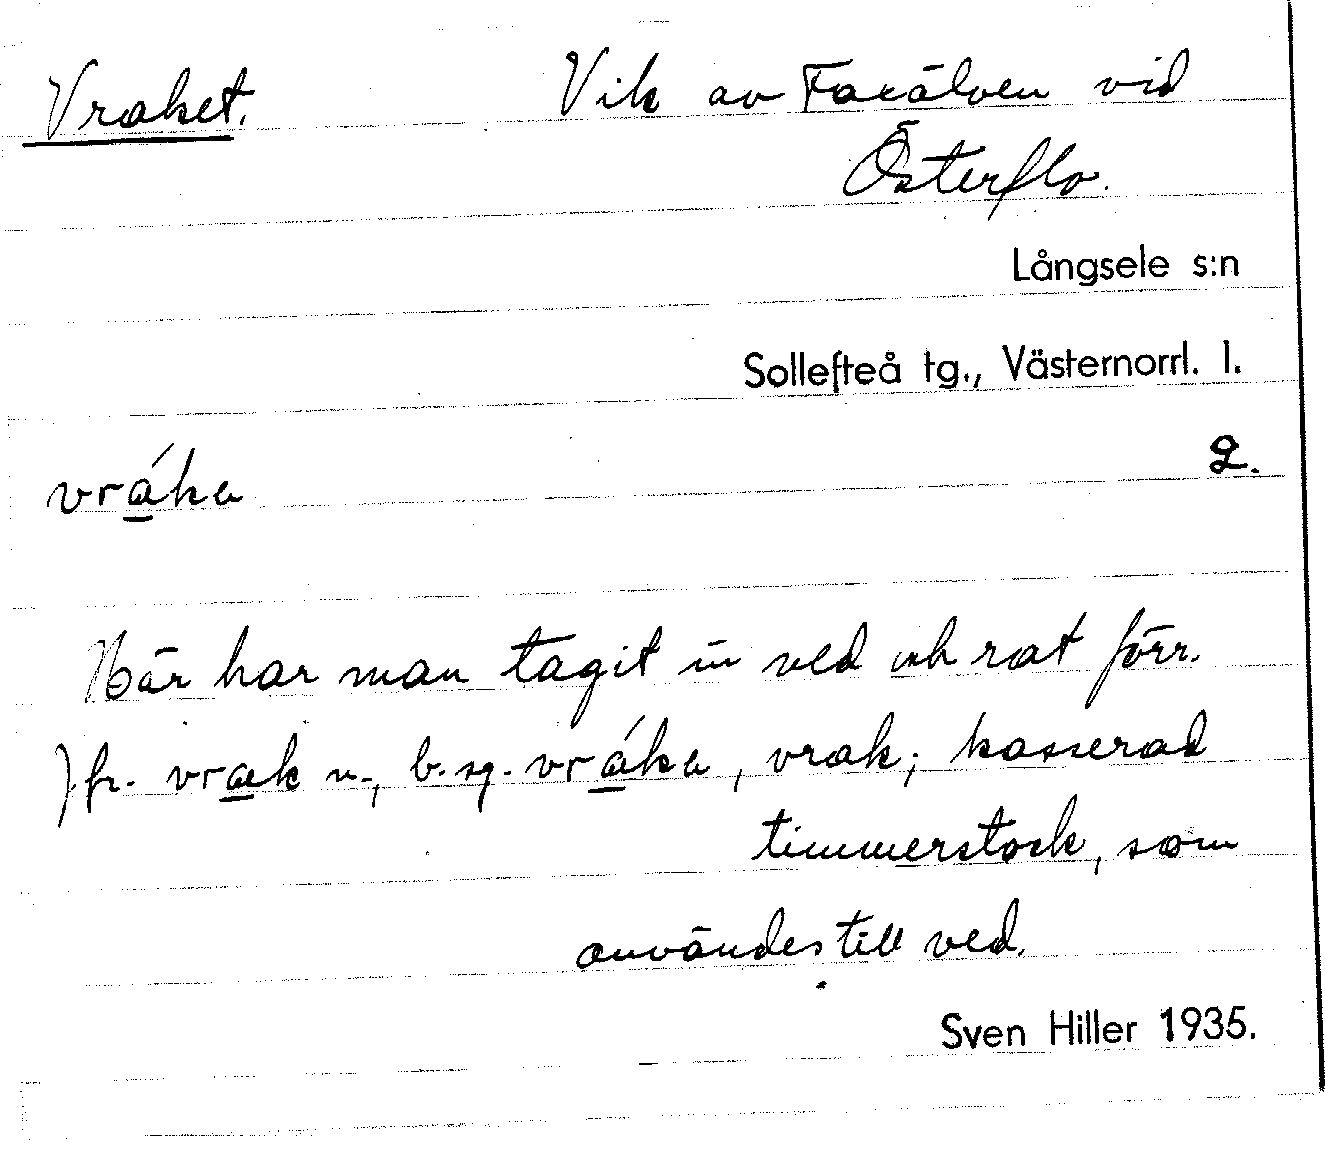 Vraket. Vik av Faxälven vid
Österflo.
Långsele s:n
Sollefteå tg., Västernorrl. l.
vráka 2.
Här har man tagit in ved och rat förr.
Jfr. vrak n., b.sg. vráka, vrak; kasserad
timmerstock, som
användes till ved.
Sven Hiller 1935.